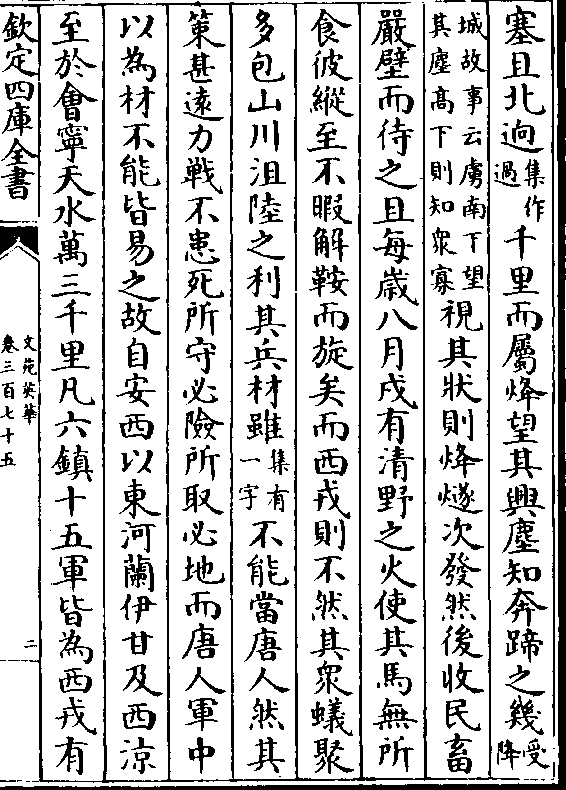 塞且北逈集作過千里而屬烽望其興塵知奔蹄之幾受降
城故事云虜南下望其塵髙下則知衆寡視其狀則烽燧次發然後收民畜
嚴壁而待之且每歳八月戍有清野之火使其馬無所
食彼縱至不暇解鞍而旋矣而西戎則不然其衆蟻聚
多包山川沮陸之利其兵材雖集有一字不能當唐人然其
策甚逺力戰不患死所守必險所取必地而唐人軍中
以為材不能皆易之故自安西以東河蘭伊甘及西涼
至於會寧天水萬三千里凡六鎮十五軍皆為西戎有
欽定四庫全書
文苑英華
卷三百七十五
二